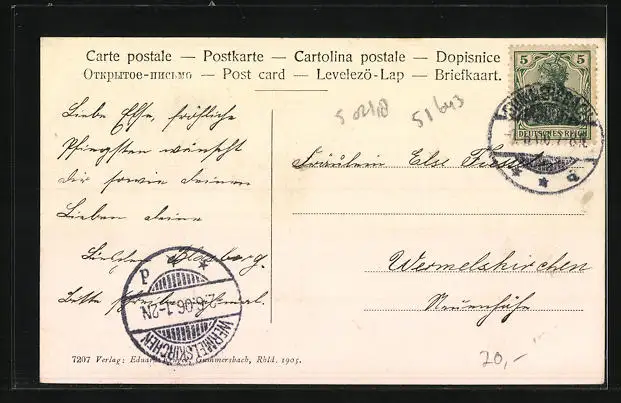 Carte postale — Postkarte — Cartolina postale — Dopisnice
Открытое-письмо — Post card — Levelező-Lap — Briefkaart.
5 5
DEUTSCHES REICH
51643
Liebe Else, fröhliche
Pfingsten wünscht
dir sowie deinen
Lieben deine
Fräulein Else
Wermelskirchen
Bitte
P
2.6.06.1-2N
WERMELSKIRCHEN
7207 Verlag: Eduard Gummersbach, Rhld. 1905.
20,-